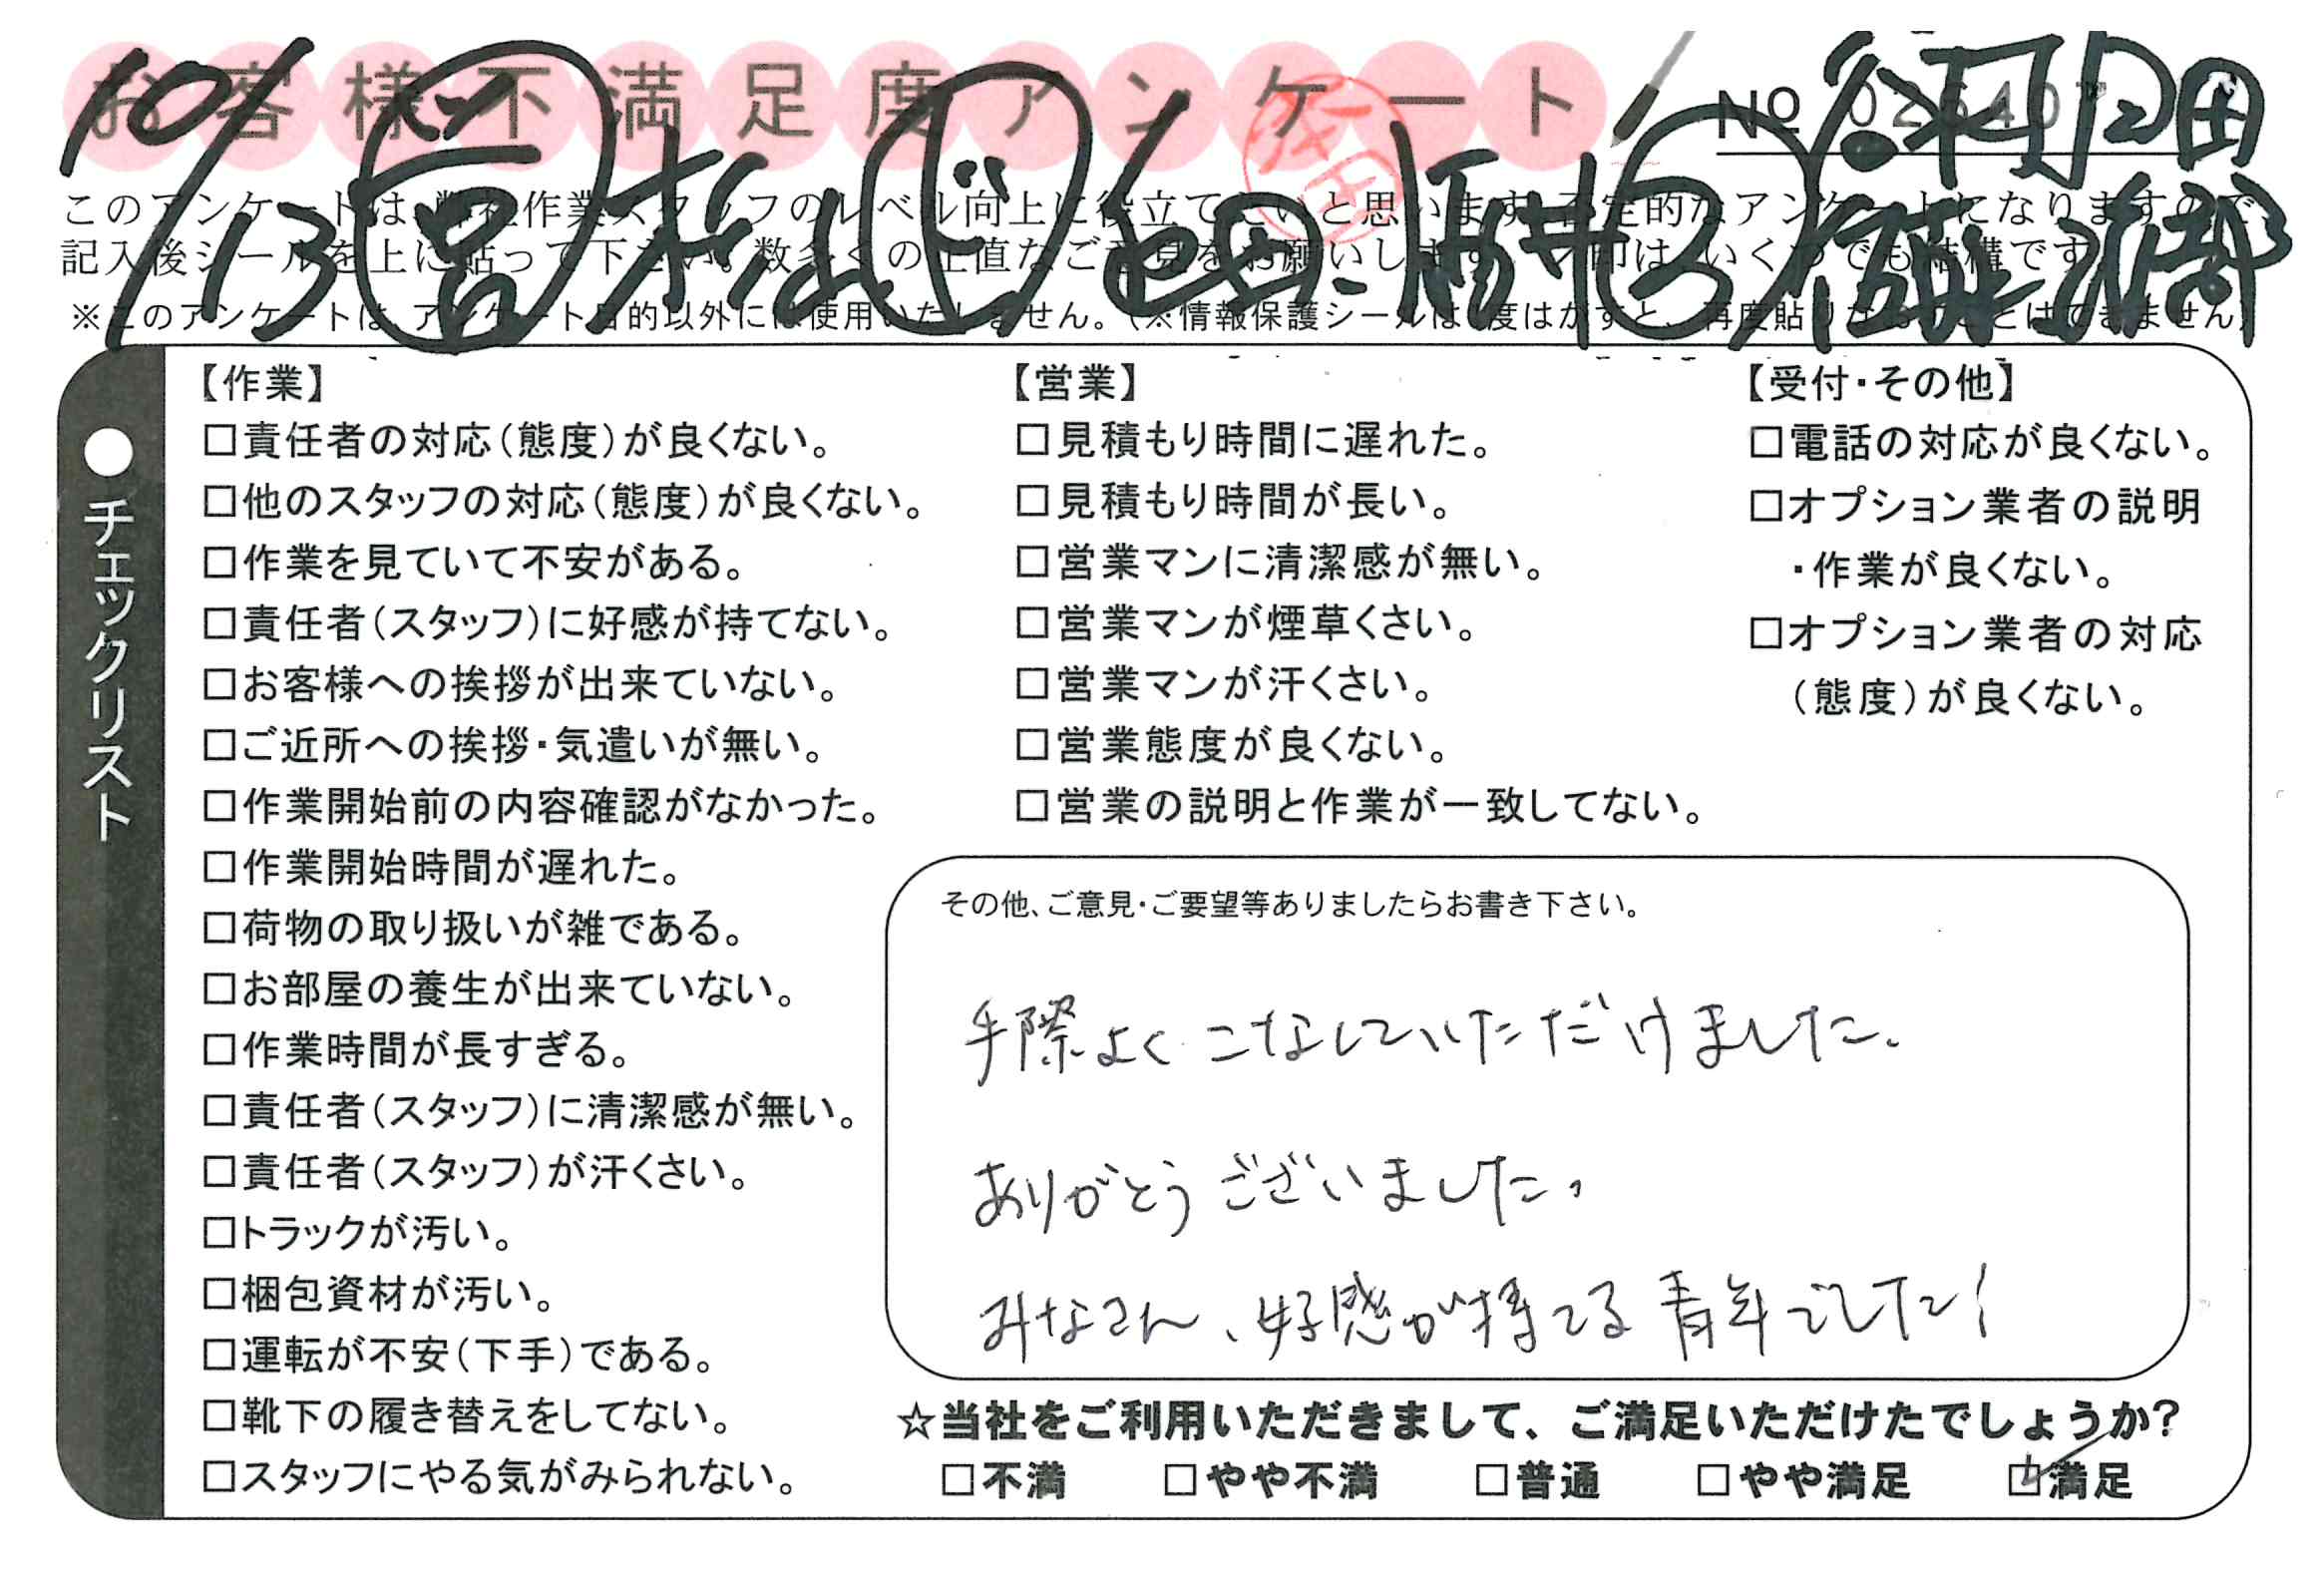 お客様不満足度アンケート
No
10/13
このアンケートは、弊社作業スタッフのレベル向上に役立てたいと思います。否定的なアンケートになりますので、
記入後シールを上に貼って下さい。数多くの正直なご意見をお願いします。
※このアンケートは、アンケート目的以外には使用いたしません。（※情報保護シールは1度はがすと、再度貼りなおすことはできません）
●チェックリスト
【作業】
□責任者の対応（態度）が良くない。
□他のスタッフの対応（態度）が良くない。
□作業を見ていて不安がある。
□責任者（スタッフ）に好感が持てない。
□お客様への挨拶が出来ていない。
□ご近所への挨拶・気遣いが無い。
□作業開始前の内容確認がなかった。
□作業開始時間が遅れた。
□荷物の取り扱いが雑である。
□お部屋の養生が出来ていない。
□作業時間が長すぎる。
□責任者（スタッフ）に清潔感が無い。
□責任者（スタッフ）が汗くさい。
□トラックが汚い。
□梱包資材が汚い。
□運転が不安（下手）である。
□靴下の履き替えをしてない。
□スタッフにやる気がみられない。
【営業】
□見積もり時間に遅れた。
□見積もり時間が長い。
□営業マンに清潔感が無い。
□営業マンが煙草くさい。
□営業マンが汗くさい。
□営業態度が良くない。
□営業の説明と作業が一致してない。
【受付・その他】
□電話の対応が良くない。
□オプション業者の説明
・作業が良くない。
□オプション業者の対応
（態度）が良くない。
その他、ご意見・ご要望等ありましたらお書き下さい。
手際よくこなしていただけました。
ありがとうございました。
みなさん、好感が持てる青年でした！
☆当社をご利用いただきまして、ご満足いただけたでしょうか？
□不満 □やや不満 □普通 □やや満足 ☑満足